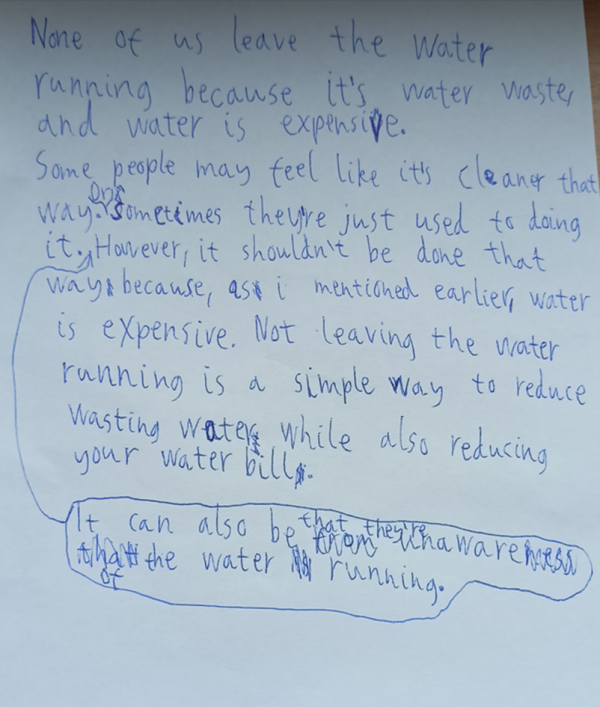 None of us leave the water
running because it's water waste,
and water is expensive.
Some people may feel like it's cleaner that
way. Or sometimes they're just used to doing
it. However, it shouldn't be done that
way because, as i mentioned earlier, water
is expensive. Not leaving the water
running is a simple way to reduce
wasting water while also reducing
your water bill.
It can also be that they're unaware
of the water running.